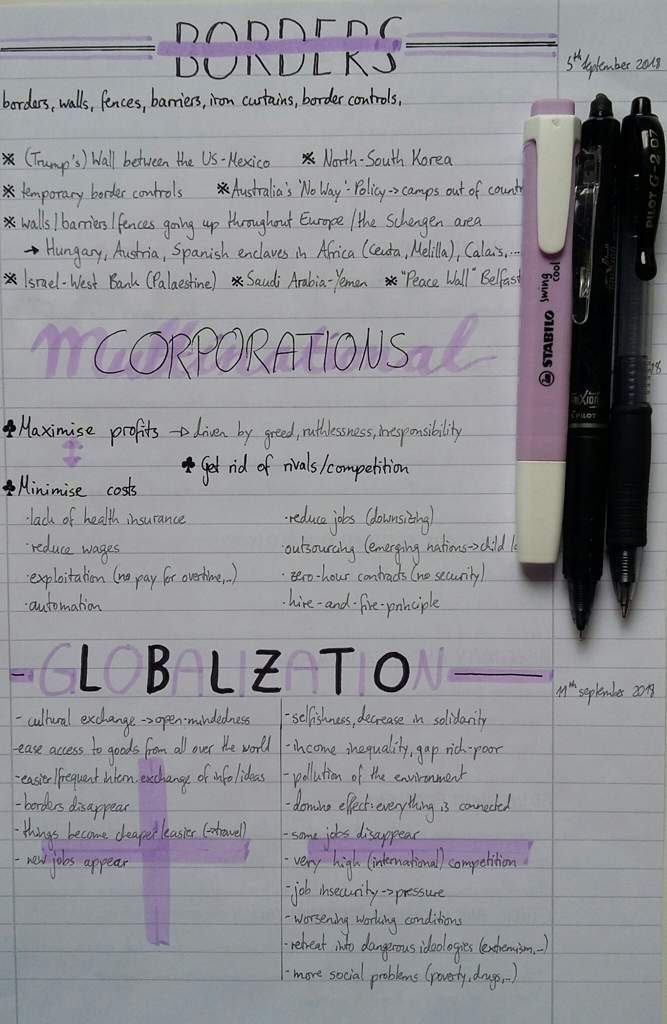 BORDERS
5th September 2018
borders, walls, fences, barriers, iron curtains, border controls,
※ (Trump's) Wall between the US-Mexico ※ North-South Korea
※ temporary border controls ※ Australia's 'No Way'-Policy → camps out of count
※ walls/barriers/fences going up throughout Europe/the Schengen area
→ Hungary, Austria, Spanish enclaves in Africa (Ceuta, Melilla), Calais,...
※ Israel-West Bank (Palaestine) ※ Saudi Arabia-Yemen ※ "Peace Wall" Belfast
Multinational
CORPORATIONS
♣ Maximise profits → driven by greed, ruthlessness, irresponsibility
↕ ♣ Get rid of rivals/competition
♣ Minimise costs
· lack of health insurance · reduce jobs (downsizing)
· reduce wages · outsourcing (emerging nations → child
· exploitation (no pay for overtime,..) · zero-hour contracts (no security)
· automation · hire-and-fire-principle
GLOBALIZATION
11th september 2018
- cultural exchange → open-mindedness
- ease access to goods from all over the world
- easier/frequent intern. exchange of info/ideas
- borders disappear
- things become cheaper/easier (→ travel)
- new jobs appear
- selfishness, decrease in solidarity
- income inequality, gap rich-poor
- pollution of the environment
- domino effect: everything is connected
- some jobs disappear
- very high (international) competition
- job insecurity → pressure
- worsening working conditions
- retreat into dangerous ideologies (extremism,..)
- more social problems (poverty, drugs,..)
STABILO swing cool
FriXion
PILOT
PILOT G-2 07